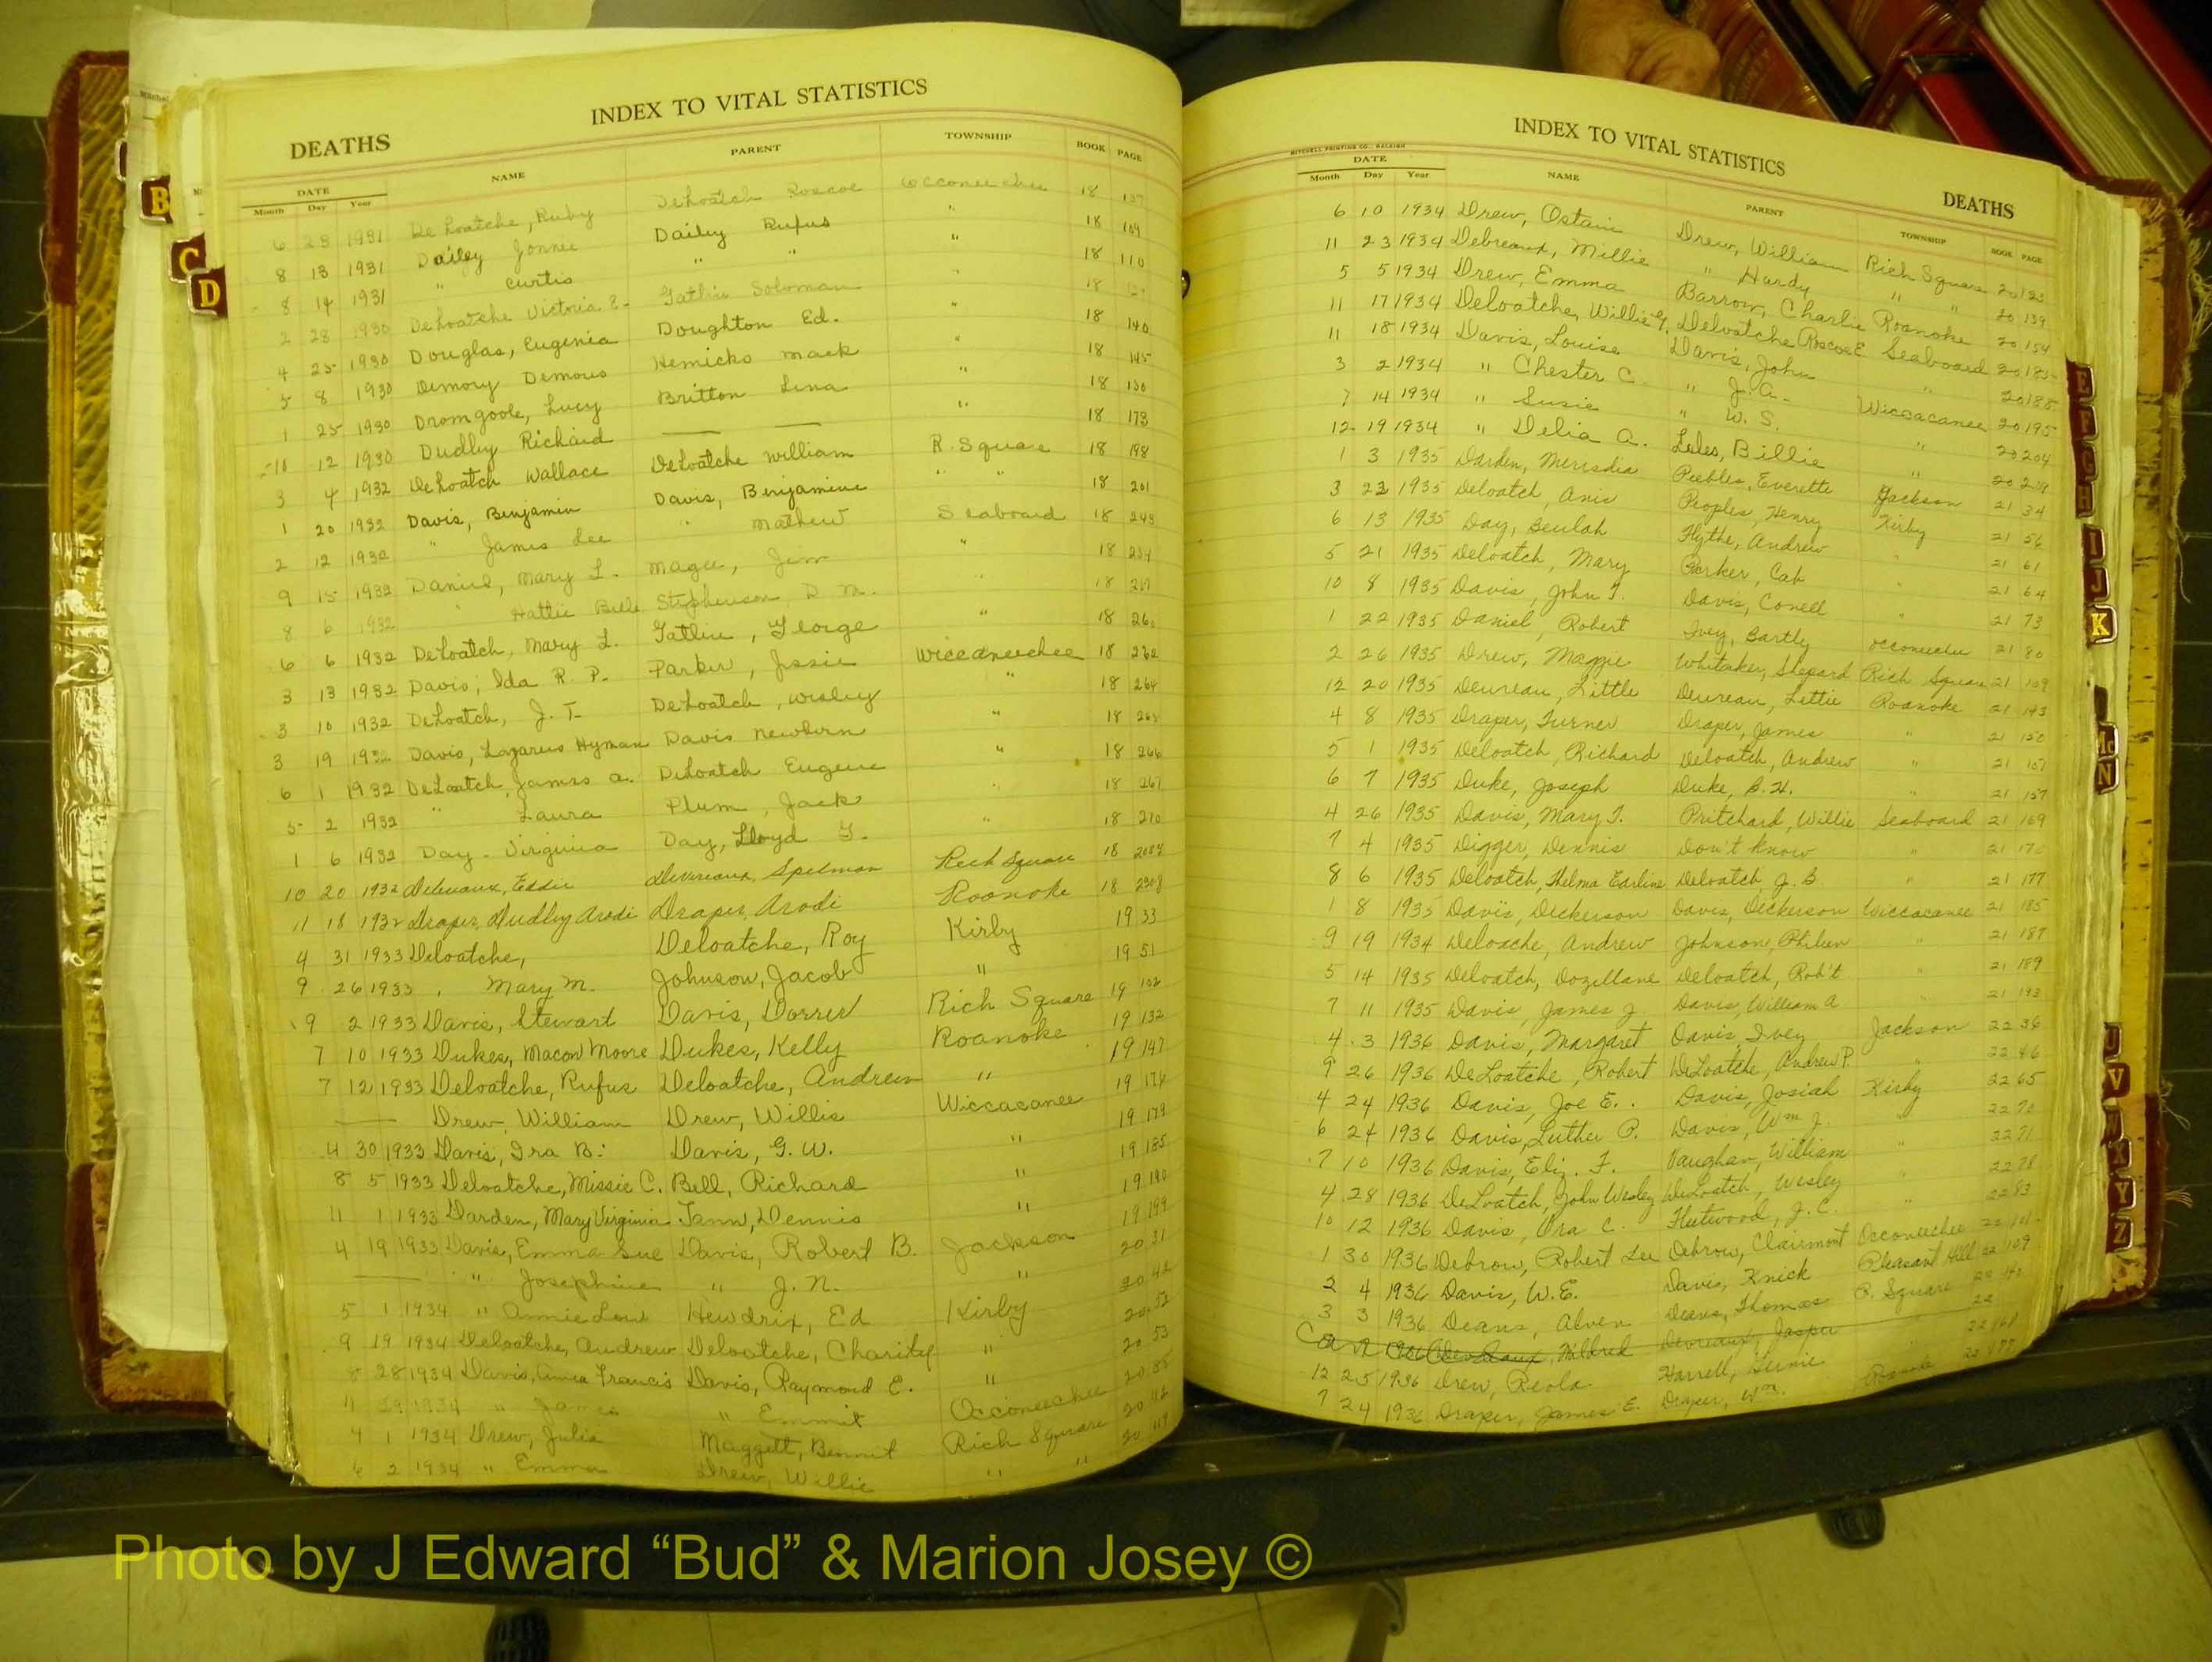 INDEX TO VITAL STATISTICS
DEATHS
DATE NAME PARENT TOWNSHIP BOOK PAGE
Month Day Year
6 28 1931 DeLoatche, Ruby DeLoatch Roscoe Occoneechee 18 137
8 13 1931 Dailey Jonnie Dailey Rufus " 18 109
8 14 1931 " Curtis " " " 18 110
2 28 1930 DeLoatche Victoria Gatlin Soloman " 18
4 25 1930 Douglas, Eugenia Doughton Ed. " 18 140
5 8 1930 Demory Demous Hemicks Mack " 18 145
1 25 1930 Dromgoole, Lucy Britton Lena " 18 150
10 12 1930 Dudley Richard — — " 18 173
3 4 1932 DeLoatch Wallace DeLoatche William R. Square 18 198
1 20 1932 Davis, Benjamin Davis, Benjamine " " 18 201
2 12 1932 " James Lee " Mathew Seaboard 18 243
9 15 1932 Daniel, Mary L. Magee, Jim " 18 254
8 6 1932 " Hattie Belle Stephenson, D M. " 18
6 6 1932 DeLoatch, Mary L. Gatling, George " 18
3 13 1932 Davis, Ida R. P. Parker, Jessie Wiccaneechee 18 262
3 10 1932 DeLoatch, J. T. DeLoatch, Wesley " 18 264
3 19 1932 Davis, Lazarus Hyman Davis Newbern " 18
6 1 1932 DeLoatch, James A. DeLoatch Eugene " 18 266
5 2 1932 " Laura Plum, Jack " 18 267
1 6 1932 Day - Virginia Day, Lloyd G. " 18 270
10 20 1932 Devereaux, Eddie Devereaux, Spelman Rich Square 18
11 18 1932 Draper, Dudley Arodi Draper, Arodi Roanoke 18
4 31 1933 Deloatche, Deloatche, Roy Kirby 19 33
9 26 1933 , Mary M. Johnson, Jacob " 19 51
9 2 1933 Davis, Stewart Davis, Dorris Rich Square 19 102
7 10 1933 Dukes, Macon Moore Dukes, Kelly Roanoke 19 132
7 12 1933 Deloatche, Rufus Deloatche, Andrew " 19 147
— Drew, William Drew, Willis Wiccacanee 19 174
4 30 1933 Davis, Ira B. Davis, G. W. " 19 179
8 5 1933 Deloatche, Missie C. Bell, Richard " 19 185
11 1 1933 Darden, Mary Virginia Tann, Dennis " 19 190
4 19 1933 Davis, Emma Sue Davis, Robert B. Jackson 19 199
— " Josephine " J. N. " 20 31
5 1 1934 " Annie Lou Hewdrix, Ed Kirby 20 42
9 19 1934 Deloatche, Andrew Deloatche, Charity " 20 52
8 28 1934 Davis, Francis Davis, Raymond E. " 20 53
11 29 1934 " James " Emmit Occoneechee 20 88
4 1 1934 Drew, Julia Maggett, Bennit Rich Square 20 112
6 2 1934 " Emma Drew, Willie " " 20 119
INDEX TO VITAL STATISTICS
DEATHS
MITCHELL PRINTING CO., RALEIGH
DATE NAME PARENT TOWNSHIP BOOK PAGE
Month Day Year
6 10 1934 Drew, Ostain Drew, William Rich Square 20 123
11 23 1934 Debreaux, Millie " Hardy " " 20 139
5 5 1934 Drew, Emma Barrow, Charlie Roanoke 20 154
11 17 1934 Deloatche, Willie G. Deloatche Roscoe E. Seaboard 20 185
11 18 1934 Davis, Louise Davis, John " 20 188
3 2 1934 " Chester C. " J. A. Wiccacanee 20 195
7 14 1934 " Susie " W. S. " 20 204
12 19 1934 " Delia A. Liles, Billie " 20
1 3 1935 Darden, Meresdia Peebles, Everette Jackson 21 34
3 23 1935 Deloatch, Anie Peoples, Henry Kirby 21 56
6 13 1935 Day, Beulah Flythe, Andrew " 21 61
5 21 1935 Deloatch, Mary Parker, Cab " 21 64
10 8 1935 Davis, John T. Davis, Conell " 21 73
1 22 1935 Daniel, Robert Ivey, Bartly Occoneechee 21 80
2 26 1935 Drew, Maggie Whitaker, Shepard Rich Square 21 109
12 20 1935 Deureau, Little Deureau, Lettie Roanoke 21 143
4 8 1935 Draper, Turner Draper, James " 21 150
5 1 1935 Deloatch, Richard Deloatch, Andrew " 21 157
6 7 1935 Duke, Joseph Duke, B. H. " 21 157
4 26 1935 Davis, Mary T. Pritchard, Willie Seaboard 21 169
7 4 1935 Digger, Dennis Don't know " 21
8 6 1935 Deloatch, Thelma Earline Deloatch, J. B. " 21 177
1 8 1935 Davis, Dickerson Davis, Dickerson Wiccacanee 21 185
9 19 1934 Deloache, Andrew Johnson, Philen " 21 187
5 14 1935 Deloatch, Dozellane Deloatch, Rob't " 21 189
7 11 1935 Davis, James J. Davis, William A " 21 193
4 3 1936 Davis, Margaret Davis Ivey Jackson 22 36
9 26 1936 DeLoatche, Robert DeLoatche, Andrew P. " 22 46
4 24 1936 Davis, Joe E. Davis, Josiah Kirby 22 65
6 24 1936 Davis, Luther P. Davis, Wm J. " 22 70
7 10 1936 Davis, Eliz. F. Vaughan, William " 22 71
4 28 1936 DeLoatch, John Wesley DeLoatch, Wesley " 22 78
10 12 1936 Davis, Ora C. Fleetwood, J. C. " 22 83
1 30 1936 Debrow, Robert Lee Debrow, Clairmont Occoneechee 22
2 4 1936 Davis, W. E. Davis, Knick Pleasant Hill 22 109
3 3 1936 Deans, Alven Deans, Thomas R. Square 22
Devreaux, Mildred Devreaux, Jasper 22
12 25 1936 Drew, Reola Harrell, " 22
7 24 1936 Draper, James E. Draper, Wm. Roanoke 22 177
B
C
D
E
G
H
I
J
K
Mc
N
V
X
Y
Z
Photo by J Edward “Bud” & Marion Josey ©